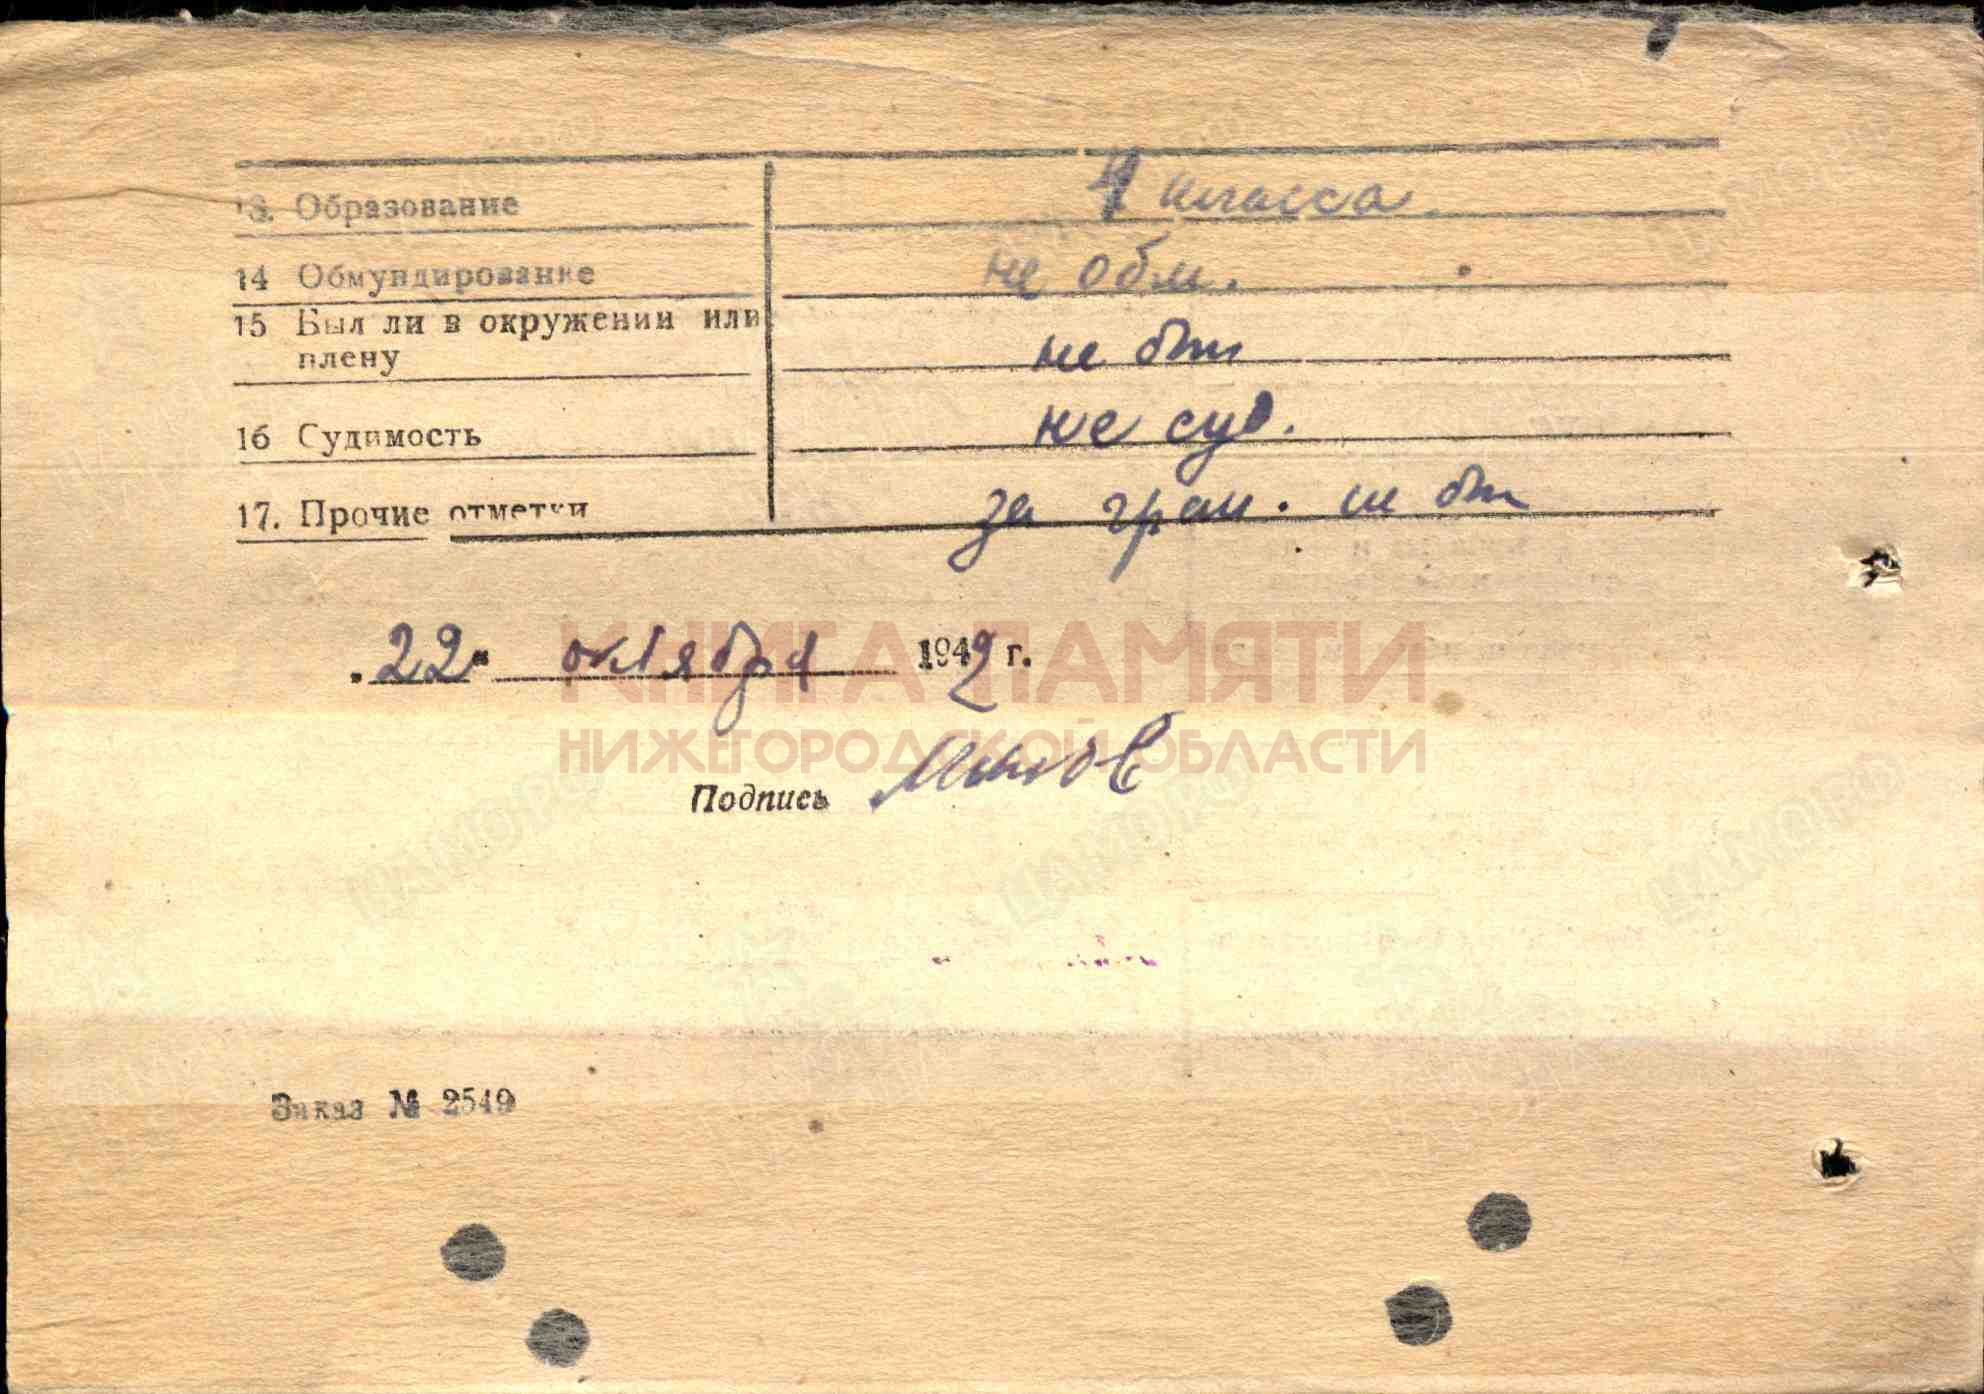 13. Образование 4 класса.
14 Обмундирование не обм.
15 Был ли в окружении или
плену не был
16 Судимость не суд.
17. Прочие отметки за гран. не был
„22“ октября 1942 г.
КНИГА ПАМЯТИ
НИЖЕГОРОДСКОЙ ОБЛАСТИ
Подпись
ЦАМО.РФ ЦАМО.РФ ЦАМО.РФ
Заказ № 2549